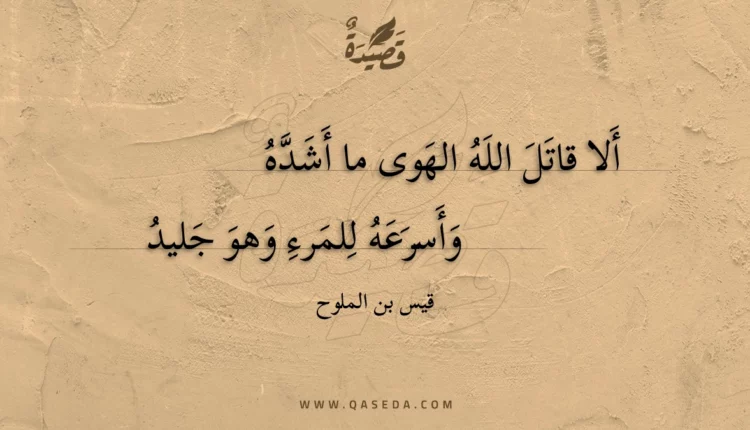 قَصِيدَةٌ
أَلا قاتَلَ اللَهُ الهَوى ما أَشَدَّهُ
وَأَسرَعَهُ لِلمَرءِ وَهوَ جَليدُ
قيس بن الملوح
WWW.QASEDA.COM